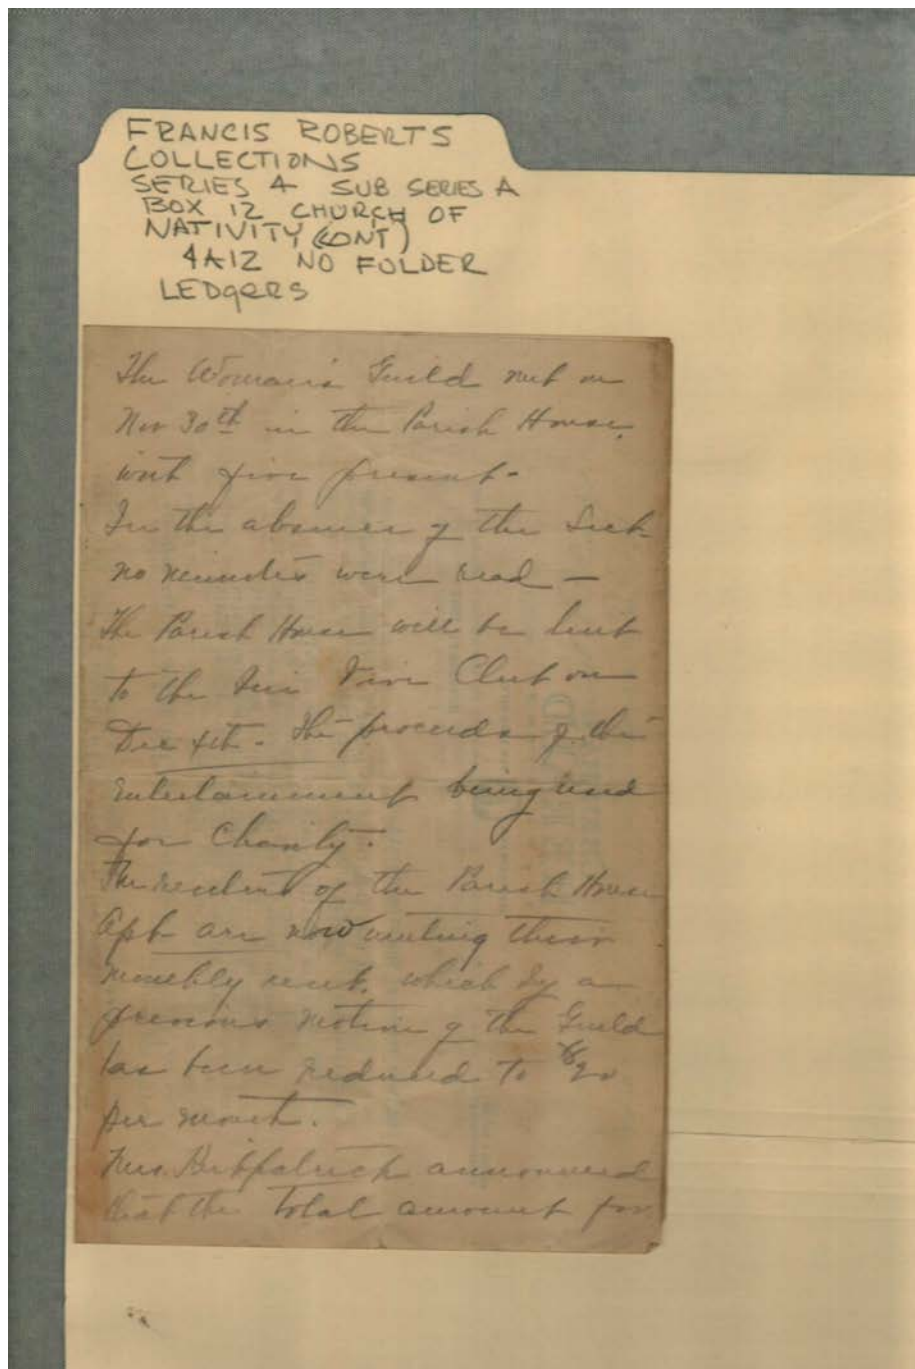 FRANCIS ROBERTS
COLLECTIONS
SERIES 4 SUB SERIES A
BOX 12 CHURCH OF
NATIVITY (CONT)
4A12 NO FOLDER
LEDgERS
The Woman's Guild met on
Nov 30th in the Parish House,
with five present-
In the absence of the Sect-
no minutes were read —
The Parish House will be lent
to the Club on
Dec - The proceeds of the
entertainment being used
for Charity.
The resident of the Parish House
Apt- are now meeting their
monthly rent. which by a
previous motion of the Guild
has been reduced to $20
per month.
Mrs. Kirkpatrick announced
that the total amount for